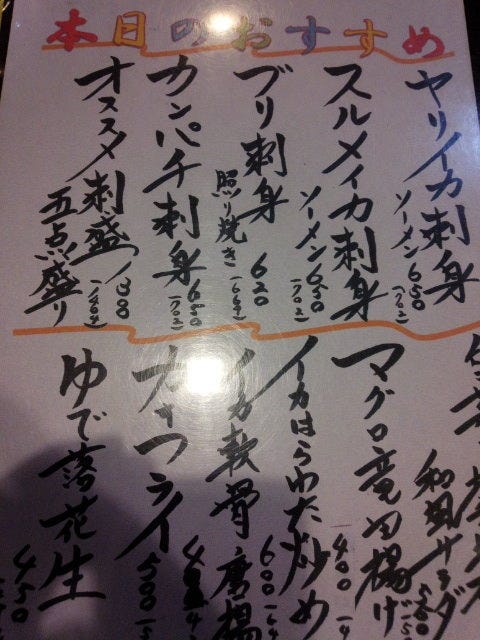 本日のおすすめ
ヤリイカ刺身
ソーメン 650
(702)
スルメイカ刺身
ソーメン 650
(702)
ブリ刺身
照り焼き 620
カンパチ刺身 650
(702)
オススメ刺盛 1300
(1404)
五点盛り
和風サラダ
マグロ竜田揚げ
400
イカはらわた炒め
600
イカ軟骨唐揚
カキフライ
500
ゆで落花生
450